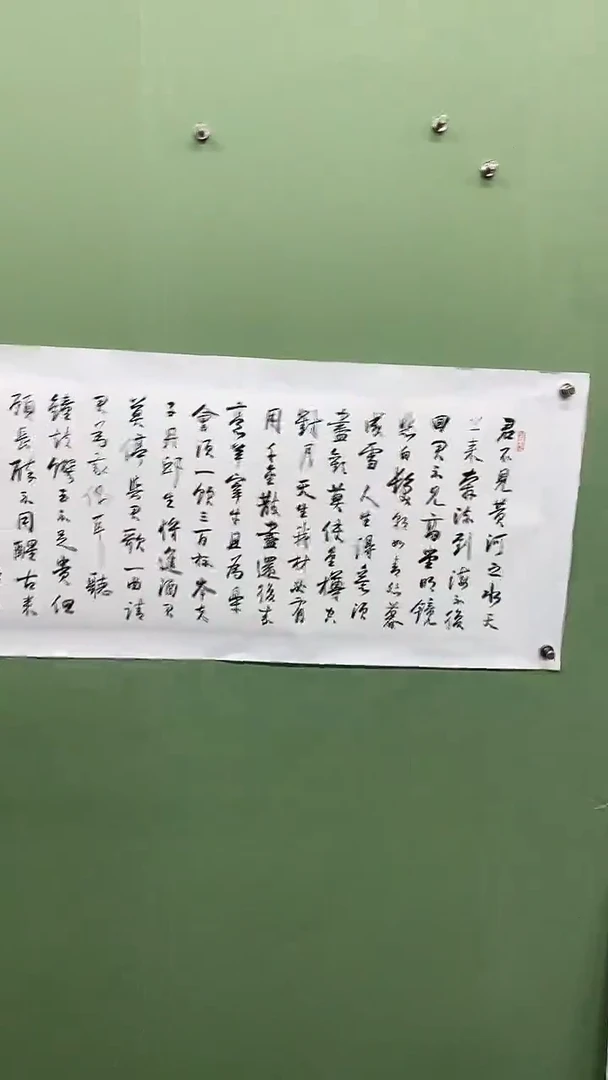 君不見黄河之水天
上来奔流到海不復
回君不見高堂明鏡
悲白髮朝如青絲暮
成雪人生得意須
盡歡莫使金樽空
對月天生我材必有
用千金散盡還復来
烹羊宰牛且為樂
會須一飲三百杯岑夫
子丹邱生将進酒君
莫停與君歌一曲請
君為我傾耳聽
鐘鼓饌玉不足貴但
願長醉不用醒古来